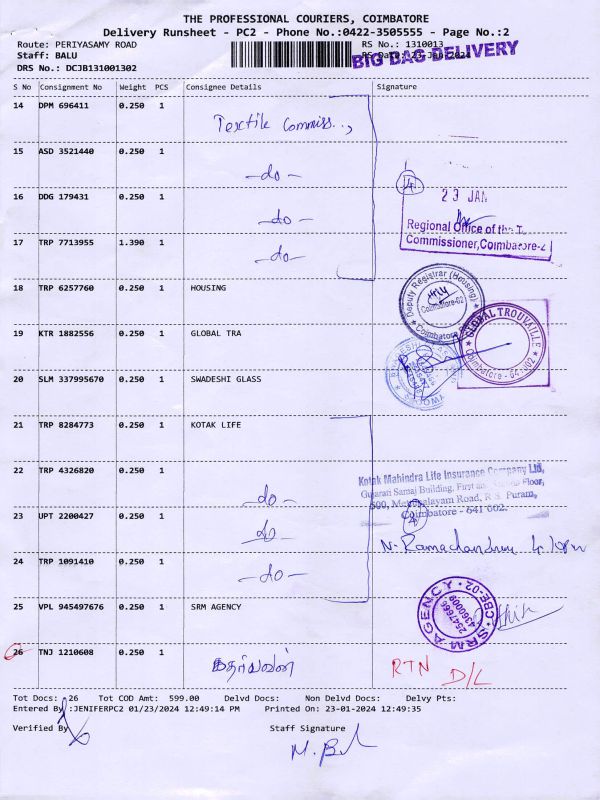 THE PROFESSIONAL COURIERS, COIMBATORE
Delivery Runsheet - PC2 - Phone No.:0422-3505555 - Page No.:2
Route: PERIYASAMY ROAD RS No.: 1310013
Staff: BALU RS Date: 23-Jan-2024
BIG BAG DELIVERY
DRS No.: DCJB131001302
S No Consignment No Weight PCS Consignee Details Signature
14 DPM 696411 0.250 1
Textile Commiss..,
15 ASD 3521440 0.250 1
-do-
4
23 JAN
16 DDG 179431 0.250 1
-do-
Regional Office of the T
Commissioner, Coimbatore-2
17 TRP 7713955 1.390 1
-do-
18 TRP 6257760 0.250 1 HOUSING
Deputy Registrar (Housing)
Coimbatore-02
19 KTR 1882556 0.250 1 GLOBAL TRA
GLOBAL TROUVAILLE
Coimbatore - 641 002
20 SLM 337995670 0.250 1 SWADESHI GLASS
21 TRP 8284773 0.250 1 KOTAK LIFE
22 TRP 4326820 0.250 1
-do-
Kotak Mahindra Life Insurance Company Ltd,
Gujaran Samaj Building, First and Floor,
500, Mettupalayam Road, R.S. Puram,
Coimbatore - 641 002.
23 UPT 2200427 0.250 1
do
4
N. Ramachandran
24 TRP 1091410 0.250 1
-do-
25 VPL 945497676 0.250 1 SRM AGENCY
SRM AGENCY CBE-02
2547666
4360009
26 TNJ 1210608 0.250 1
RTN D/L
Tot Docs: 26 Tot COD Amt: 599.00 Delvd Docs: Non Delvd Docs: Delvy Pts:
Entered By :JENIFERPC2 01/23/2024 12:49:14 PM Printed On: 23-01-2024 12:49:35
Verified By Staff Signature